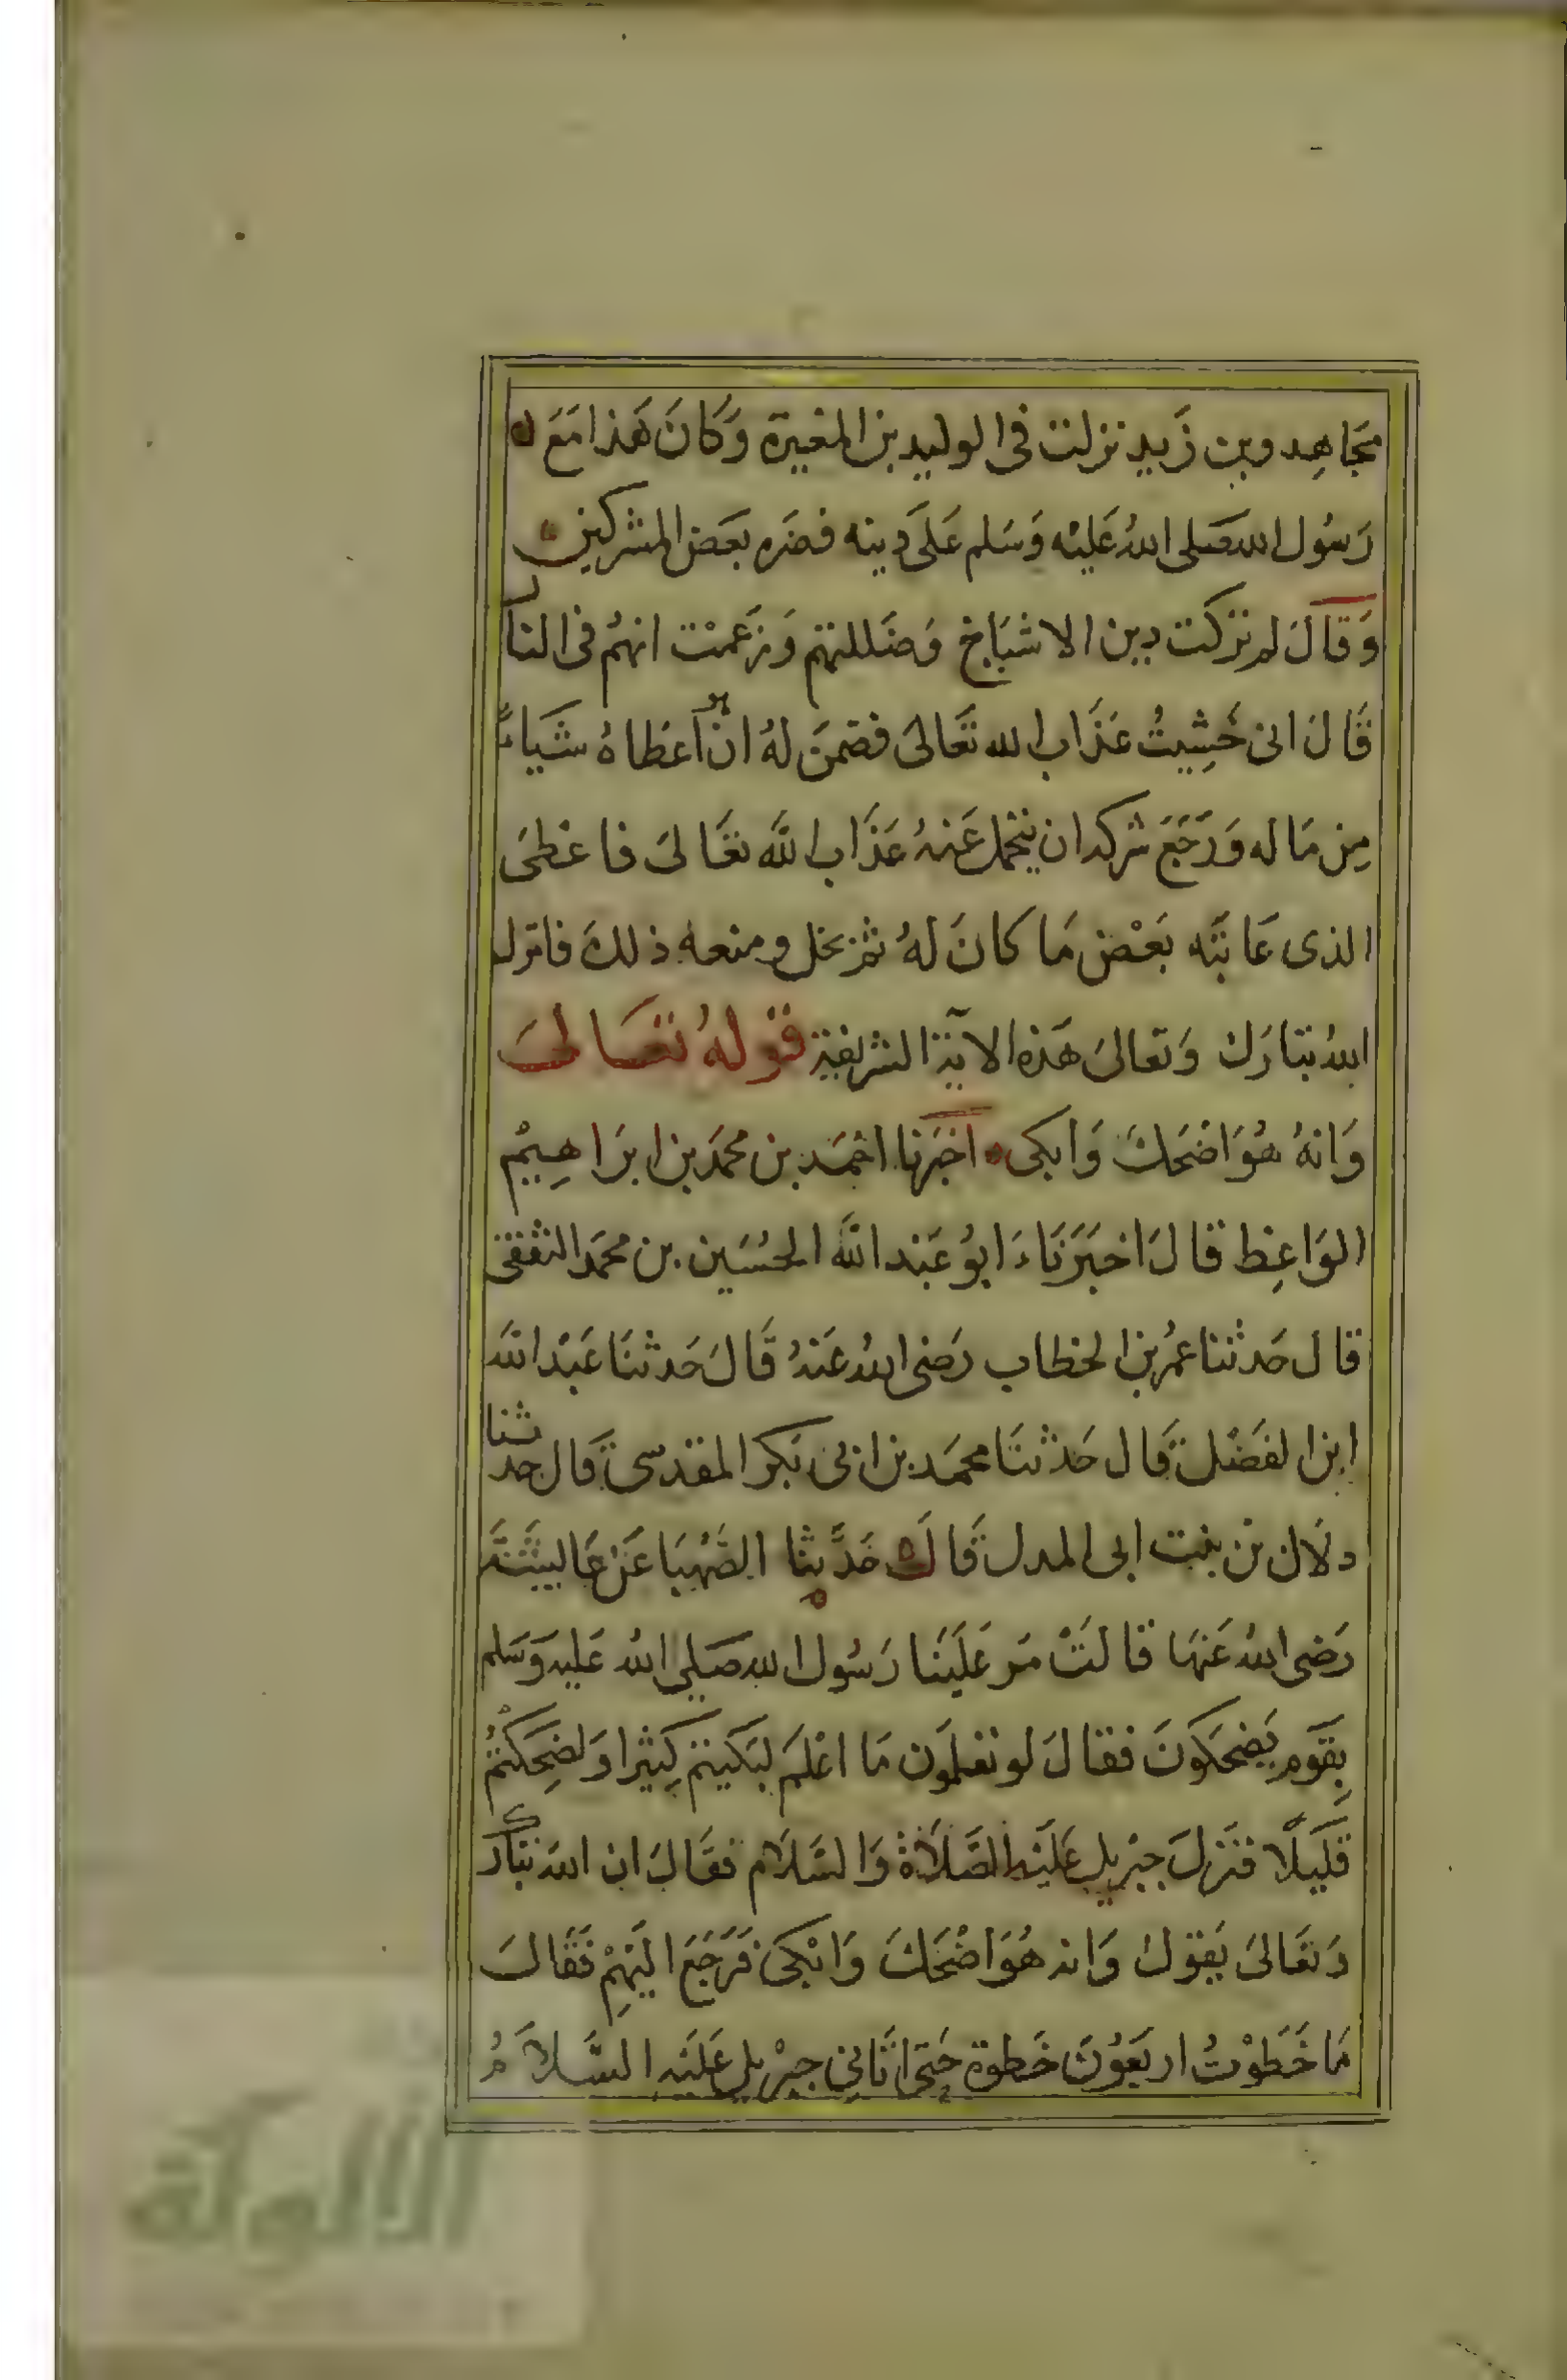 مجَاهِد وبن زَيد نزلت فى الوليد بن المغيرة وَكانَ هَذا مَعَ
رَسُول الله صَلى اللهُ عَليْه وَسَلم عَلَى دينه فضره بعَض المشركين
وَقالَ لم تركت دين الاشيَاخ وَضَللتهم وَزعَمْت انهُم فى النار
قَالَ انى خَشِيتُ عَذَاب الله تَعَالىَ فضمنَ لهُ ان هو اَعطاهُ شَياءً
مِن مَاله وَرَجَعَ شركه ان يتحمل عَنهُ عَذَاب اللَّه تعَالىَ فاعْطىَ
الذى عَاتبَه بَعْض مَا كانَ لهُ ثم بخل ومنعه ذلكَ فانزل
اللهُ تبَارَك وَتعالىَ هَذه الآية الشريفة قولهُ تعَالىَ
وَانهُ هُوَ اضْحَكَ وَابكى اَخبَرنا احْمَد بن محمَد بن ابرَاهِيمْ
الوَاعِظ قالَ اخبَرَنَاءَ ابوُ عَبْد اللَّه الحُسَين بن محمَد الثقفى
قال حَدثنا عمُر بن الخطاب رَضى اللهُ عَنهُ قَالَ حَدثنَا عَبْد اللَّه
ابن الفضْل قَال حَدثنَا محمَد بن ابى بَكر المقدسى قَال حدثنا
دلَان بن بنت ابى المدل قَالَ حَدَّثنا الصَّهْبَا عَن عَاليشَة
رَضى اللهُ عَنهَا قالتْ مَر عَليَنا رَسُول الله صَلى الله عَليه وَسَلم
بِقَومٍ يَضحَكونَ فقالَ لو تعلمَون مَا اعْلمَ لبَكيتم كثِيرا وَلضحِكتُمْ
قَليَلًا فنَزلَ جبْريل عَليْه الصَّلَاةُ وَالسَّلَام فقَالَ ان الله تبَارك
وَتعَالىَ يَقولُ وَانه هُوَ اضْحَكَ وَابْكى فَرَجَعَ اليْهِمْ فَقَالَ
مَا خَطَوْتُ اربَعوُنَ خَطوة حَتى اتَانِى جبْريل عَليْه السَّلاَمُ
الألوكة